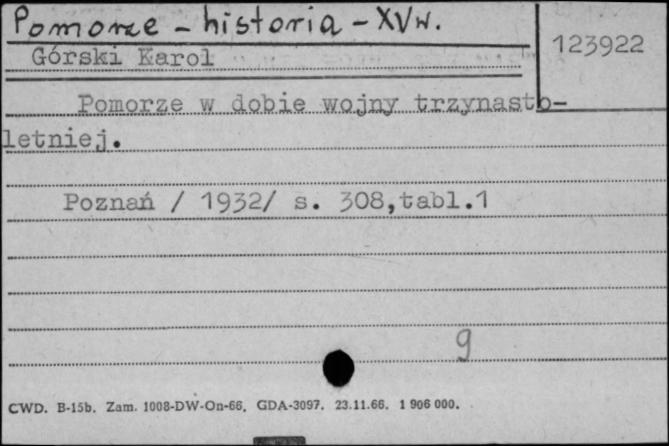 Pomorze - historia - XV w.
123922
Górski Karol
Pomorze w dobie wojny trzynasto-
letniej.
Poznań / 1932/ s. 308,tabl.1
9
CWD. B-15b. Zam. 1008-DW-On-66. GDA-3097. 23.11.66. 1 906 000.